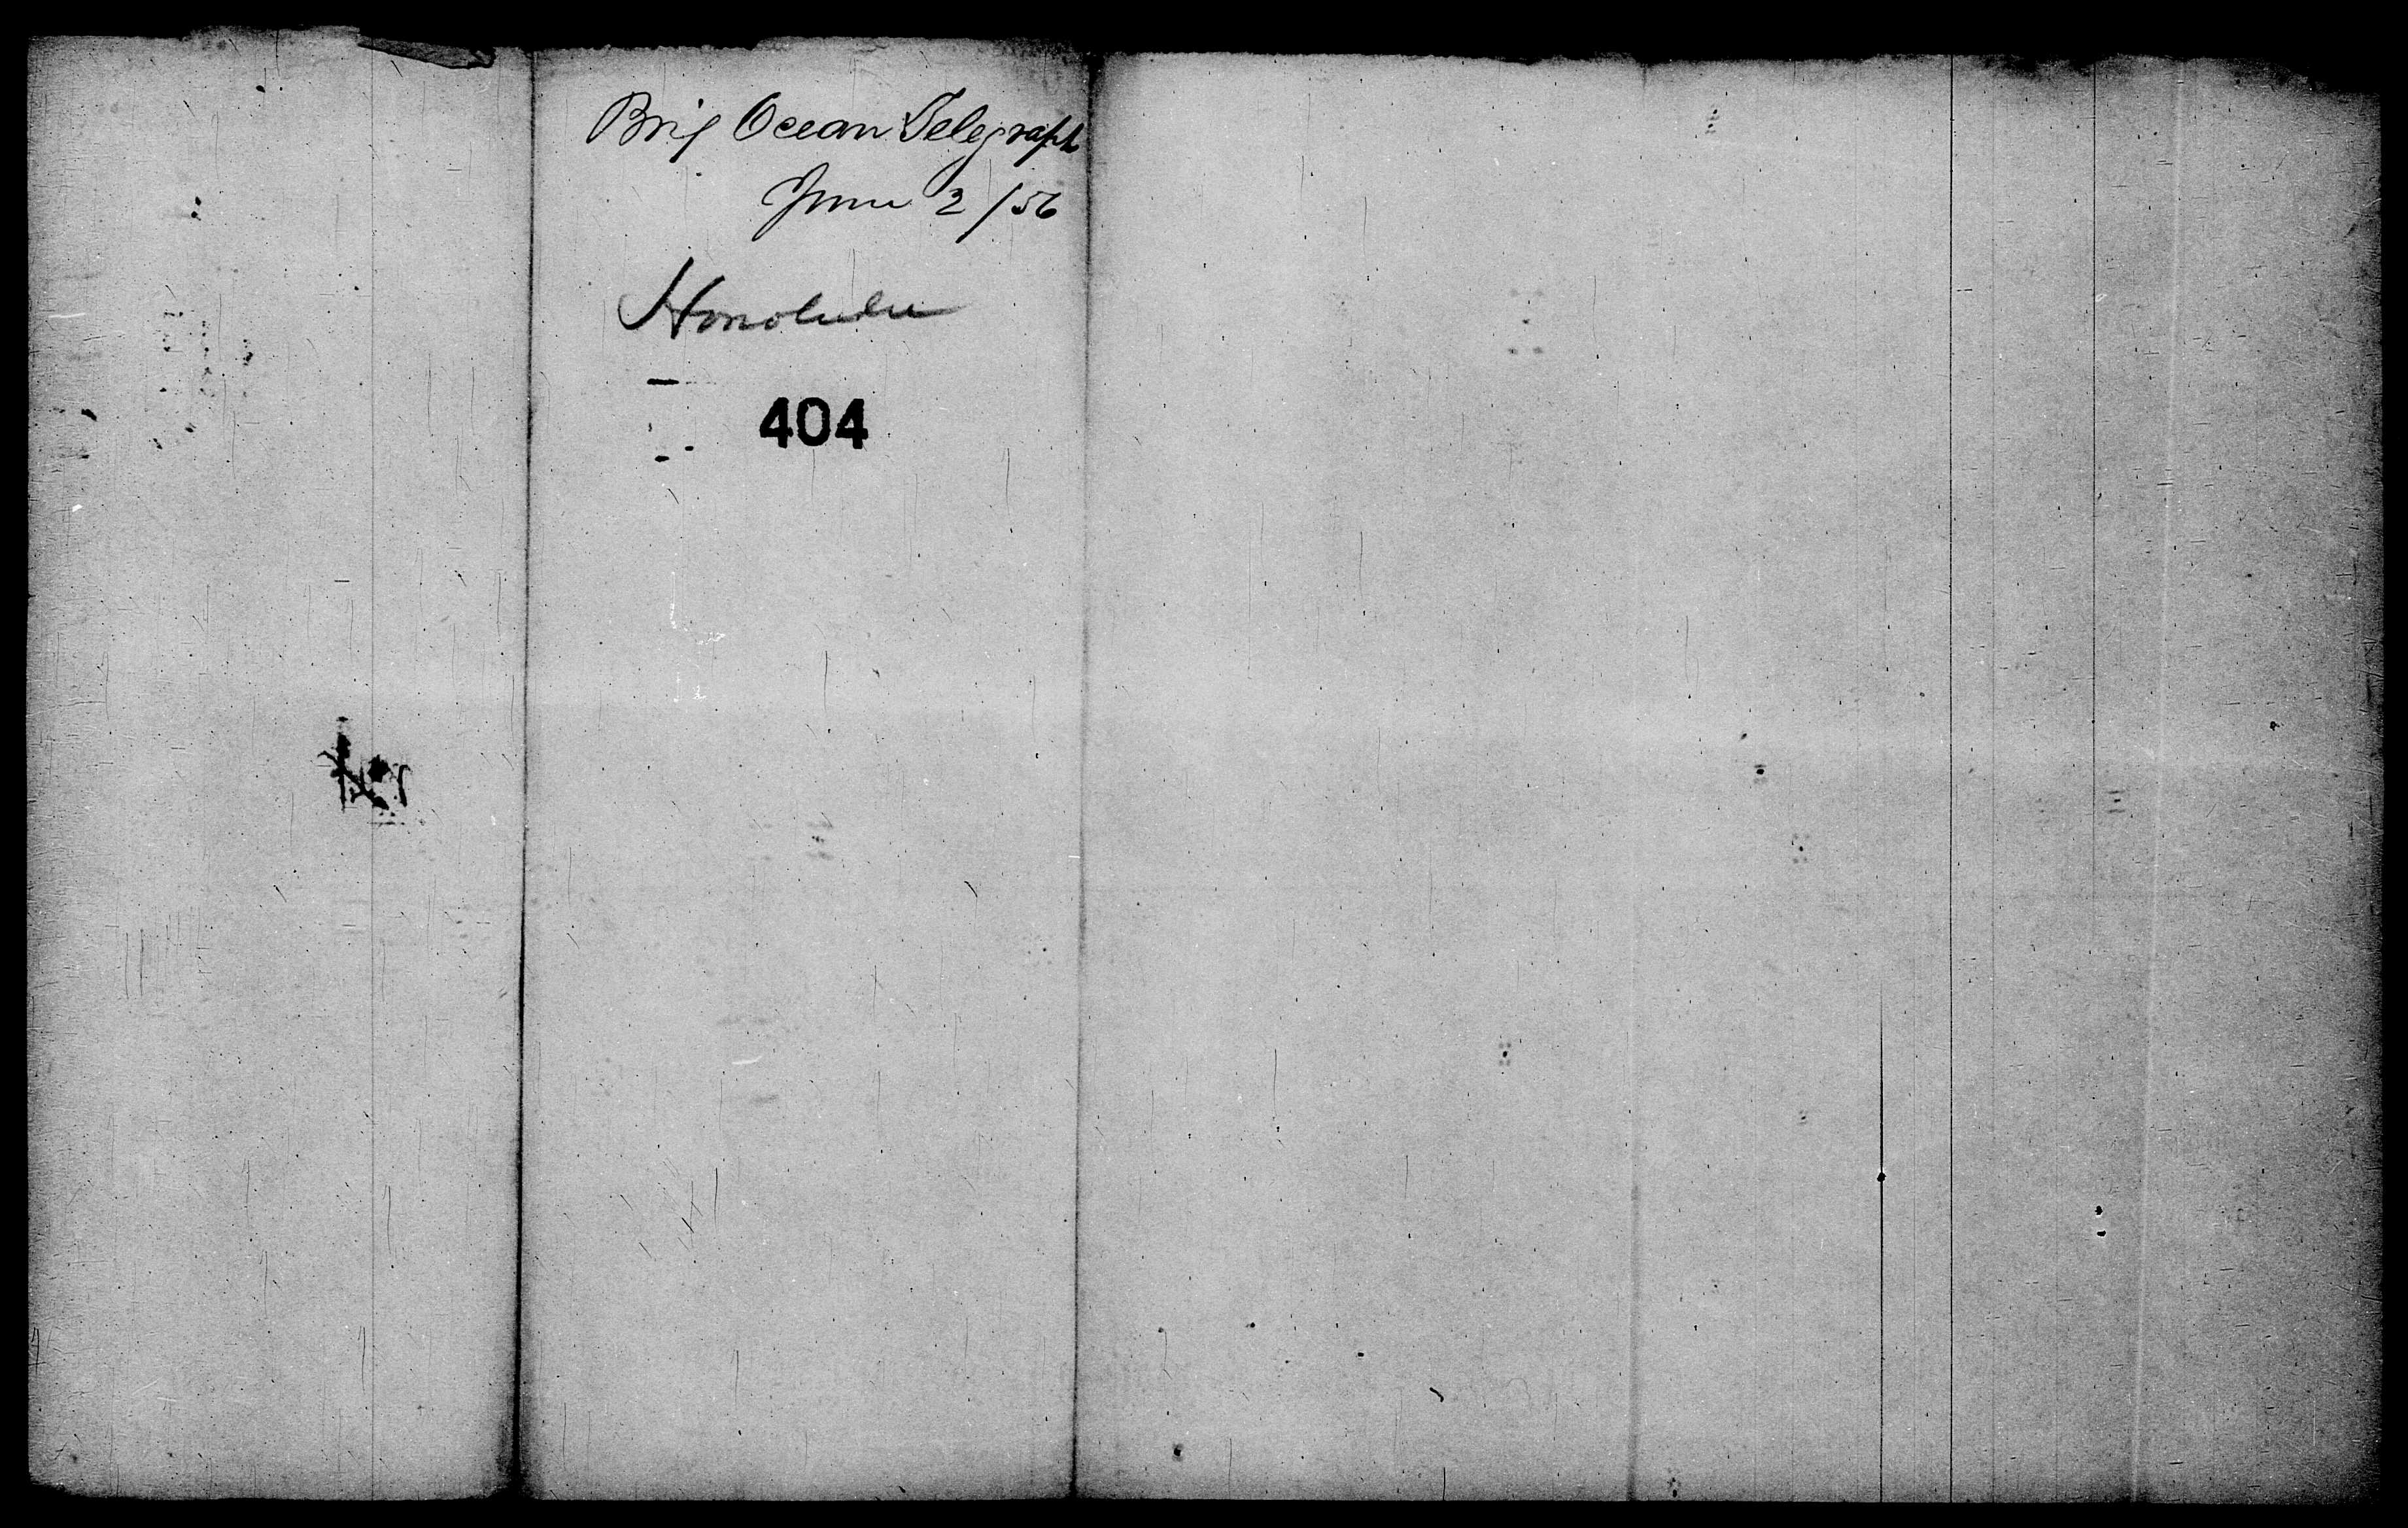 Brig Ocean Telegraph
June 2/56
Honolulu
404